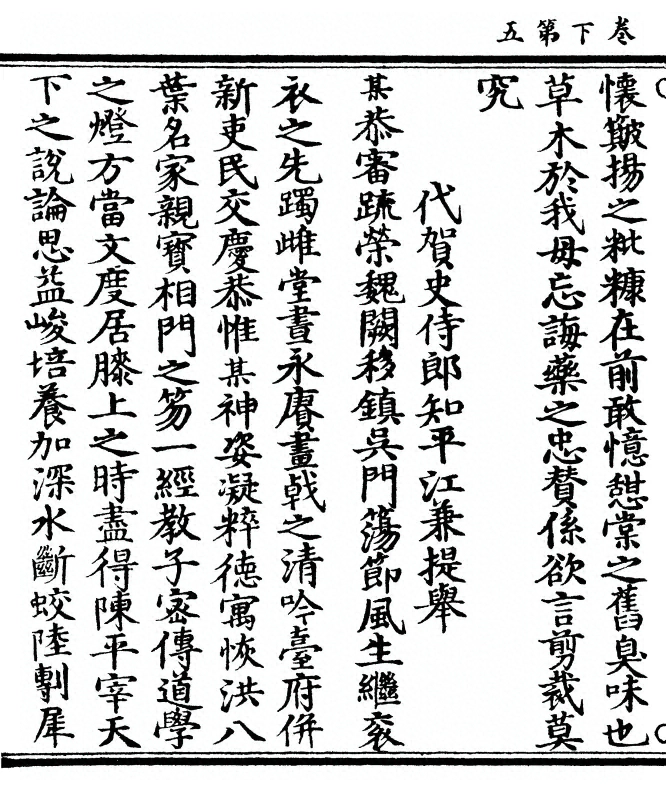 卷下第五
懷簸揚之粃糠在前敢憶憇棠之舊臭味也
草木於我毋忘誨藥之忠賛係欲言剪裁莫
究
代賀史侍郎知平江兼提舉
某恭審䟽榮魏闕移鎮吳門蕩節風生繼衮
衣之先躅雌堂晝永賡畫戟之清吟臺府併
新吏民交慶恭惟某神姿凝粹德寓恢洪八
葉名家親寳相門之笏一經教子宻傳道學
之燈方當文度居膝上之時盡得陳平宰天
下之説論思益峻培養加深水斷蛟陸剸犀